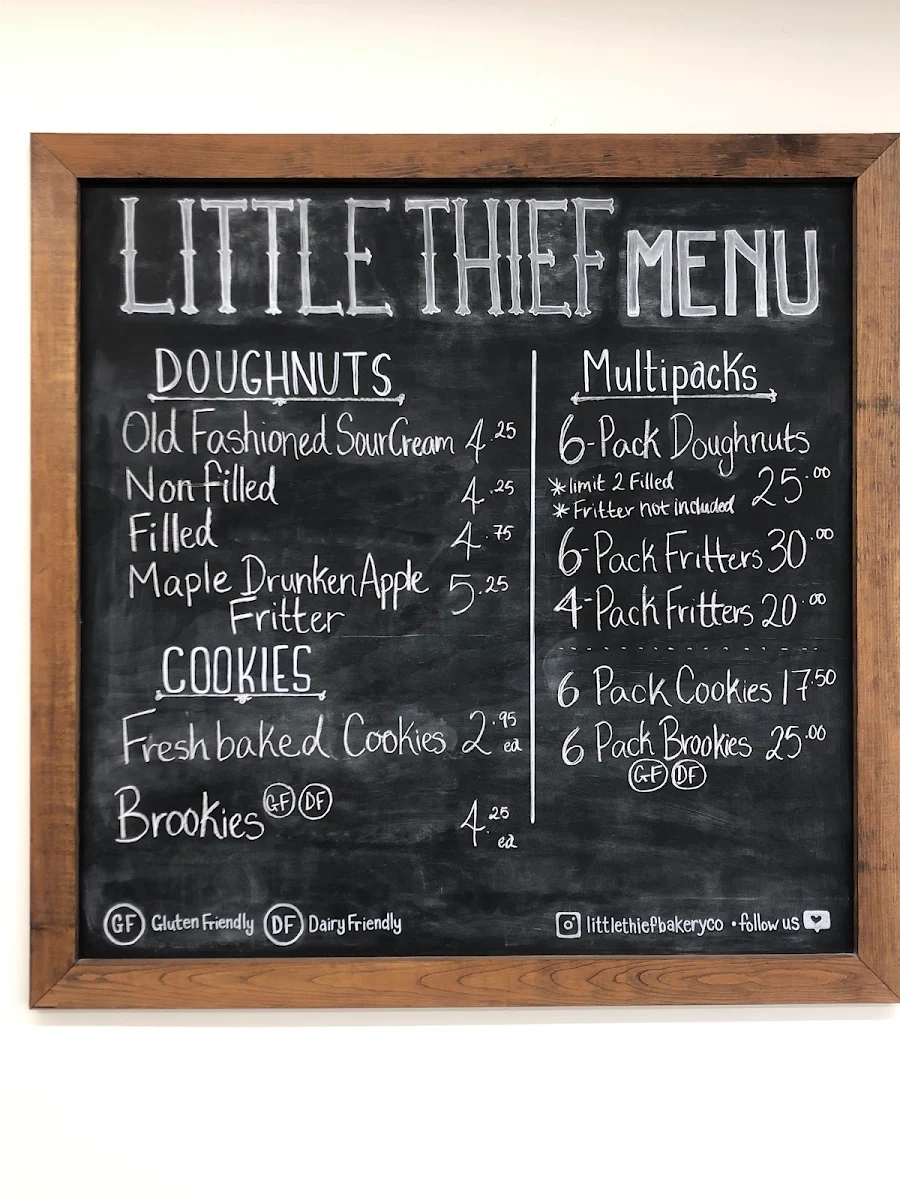 LITTLE THIEF MENU
DOUGHNUTS
Old Fashioned Sour Cream 4.25
Non filled 4.25
Filled 4.75
Maple Drunken Apple 5.25
Fritter
COOKIES
Fresh baked Cookies 2.95 ea
Brookies GF DF 4.25 ea
Multipacks
6-Pack Doughnuts
*limit 2 Filled 25.00
*Fritter not included
6-Pack Fritters 30.00
4-Pack Fritters 20.00
6 Pack Cookies 17.50
6 Pack Brookies 25.00
GF DF
GF Gluten Friendly DF Dairy Friendly
littlethiefbakeryco • follow us